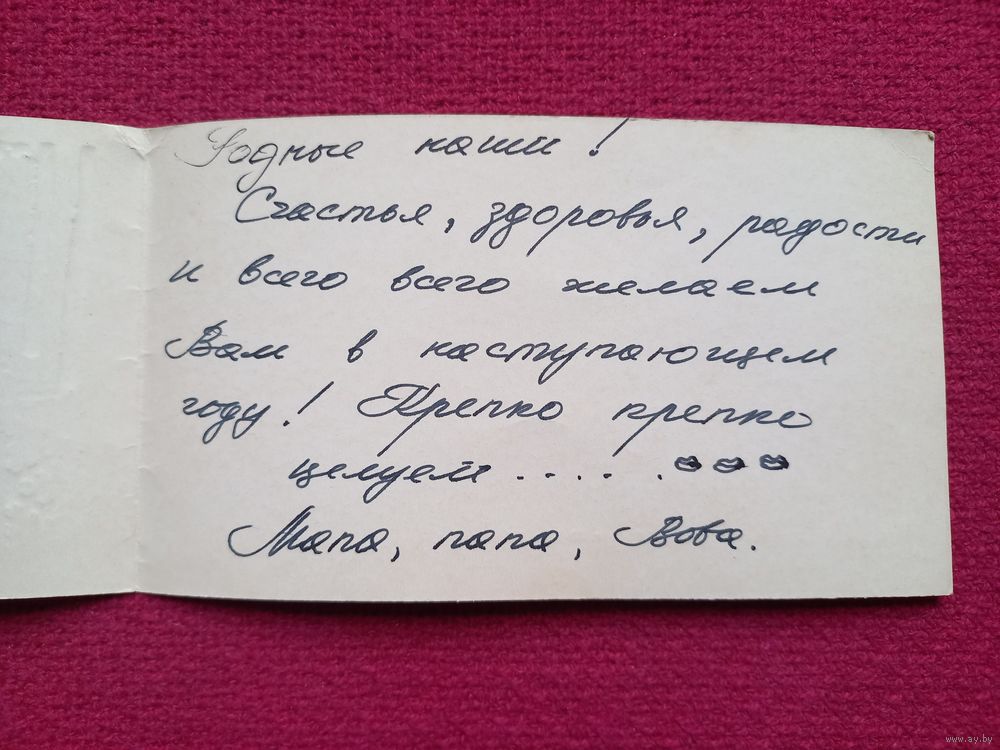 Родные наши!
Счастья, здоровья, радости
и всего всего желаем
Вам в наступающем
году! Крепко крепко
целуем . . . . .
Мама, папа, Вова.
www.ay.by